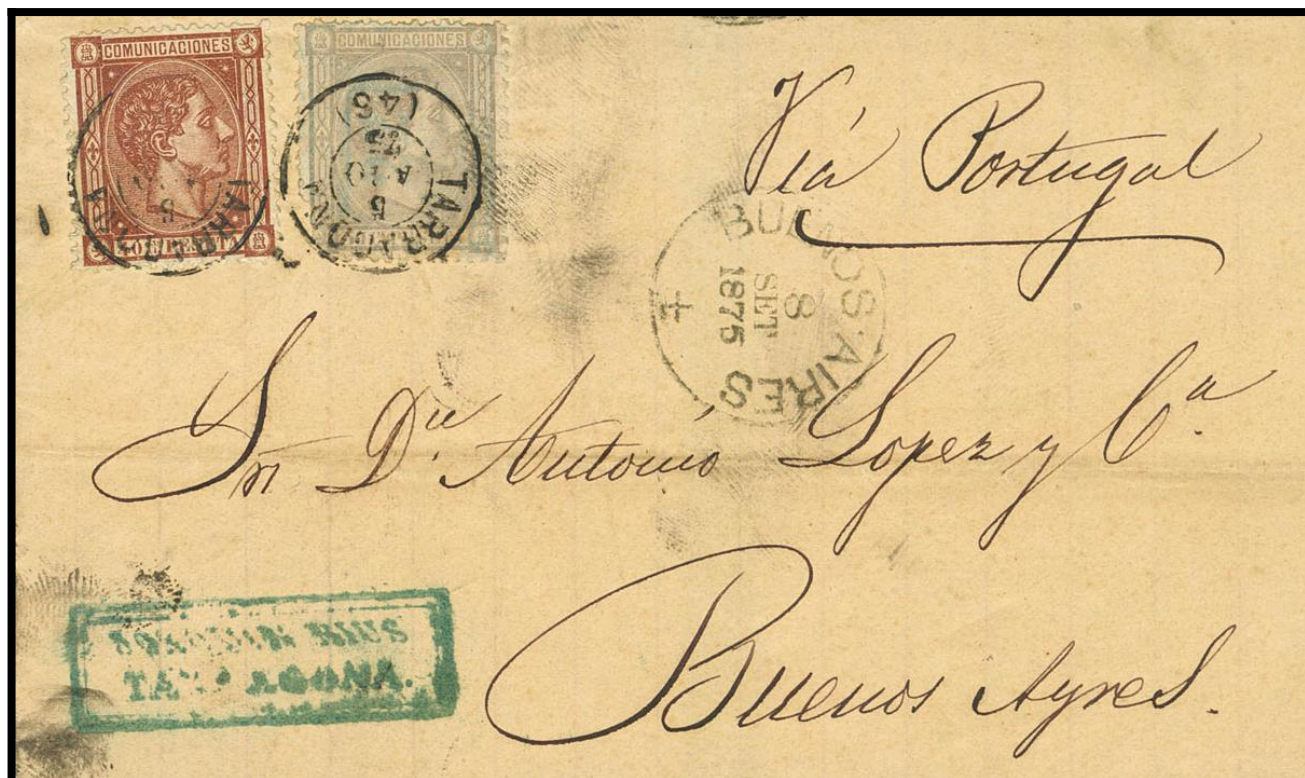 COMUNICACIONES
COMUNICACIONES
TARRAGONA
(48)
5
AGO
75
TARRAGONA
5
Via Portugal
BUENOS AIRES
8
SET
1875
Sr. Dn. Antonio Lopez y Ca.
Buenos Ayres.
TARRAGONA.